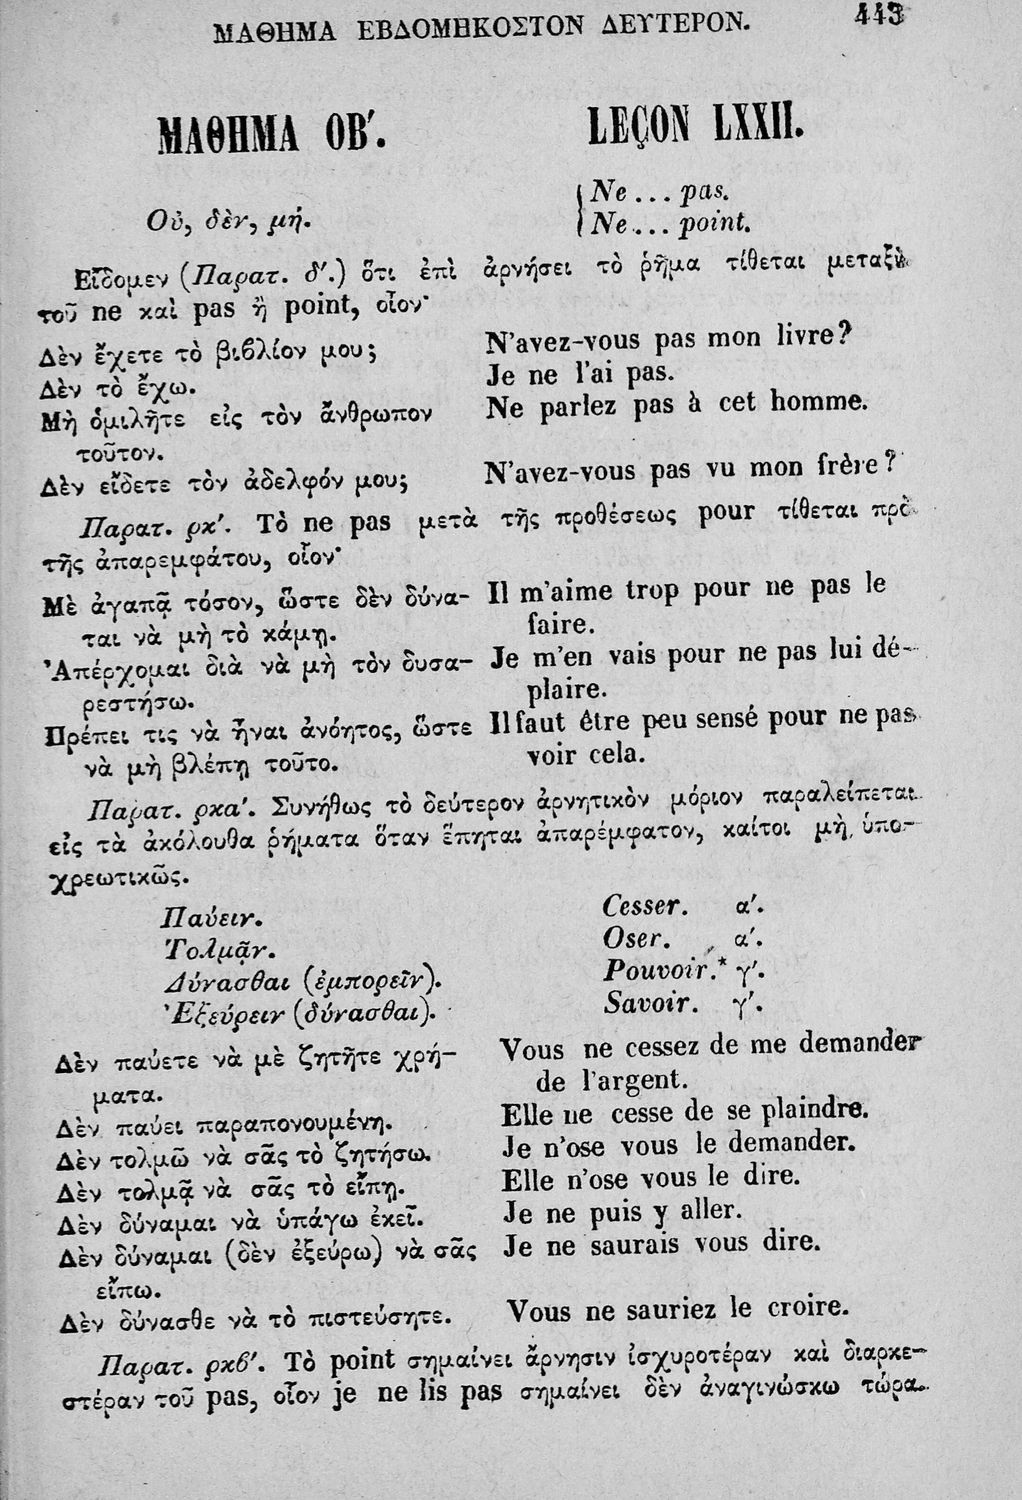 ΜΑΘΗΜΑ ΕΒΔΟΜΗΚΟΣΤΟΝ ΔΕΥΤΕΡΟΝ. 443
ΜΑΘΗΜΑ ΟΒ′. LEÇON LXXII.
Ne ... pas.
Οὐ, δὲν, μή. Ne ... point.
Εἴδομεν (Παρατ. δ′.) ὅτι ἐπὶ ἀρνήσει τὸ ῥῆμα τίθεται μεταξὺ
τοῦ ne καὶ pas ἢ point, οἷον·
Δὲν ἔχετε τὸ βιβλίον μου; N'avez-vous pas mon livre?
Δὲν τὸ ἔχω. Je ne l'ai pas.
Μὴ ὁμιλῆτε εἰς τὸν ἄνθρωπον Ne parlez pas à cet homme.
τοῦτον.
Δὲν εἴδετε τὸν ἀδελφόν μου; N'avez-vous pas vu mon frère?
Παρατ. ρκ′. Τὸ ne pas μετὰ τῆς προθέσεως pour τίθεται πρὸ
τῆς ἀπαρεμφάτου, οἷον·
Μὲ ἀγαπᾷ τόσον, ὥστε δὲν δύνα- Il m'aime trop pour ne pas le
ται νὰ μὴ τὸ κάμῃ. faire.
Ἀπέρχομαι διὰ νὰ μὴ τὸν δυσα- Je m'en vais pour ne pas lui dé-
ρεστήσω. plaire.
Πρέπει τις νὰ ἦναι ἀνόητος, ὥστε Il faut être peu sensé pour ne pas
νὰ μὴ βλέπῃ τοῦτο. voir cela.
Παρατ. ρκα′. Συνήθως τὸ δεύτερον ἀρνητικὸν μόριον παραλείπεται
εἰς τὰ ἀκόλουθα ῥήματα ὅταν ἕπηται ἀπαρέμφατον, καίτοι μὴ ὑπο-
χρεωτικῶς.
Παύειν. Cesser. α′.
Τολμᾷν. Oser. α′.
Δύνασθαι (ἐμπορεῖν). Pouvoir.* γ′.
Ἐξεύρειν (δύνασθαι). Savoir. γ′.
Δὲν παύετε νὰ μὲ ζητῆτε χρή- Vous ne cessez de me demander
ματα. de l'argent.
Δὲν παύει παραπονουμένη. Elle ne cesse de se plaindre.
Δὲν τολμῶ νὰ σᾶς τὸ ζητήσω. Je n'ose vous le demander.
Δὲν τολμᾷ νὰ σᾶς τὸ εἴπῃ. Elle n'ose vous le dire.
Δὲν δύναμαι νὰ ὑπάγω ἐκεῖ. Je ne puis y aller.
Δὲν δύναμαι (δὲν ἐξεύρω) νὰ σᾶς Je ne saurais vous dire.
εἴπω.
Δὲν δύνασθε νὰ τὸ πιστεύσητε. Vous ne sauriez le croire.
Παρατ. ρκβ′. Τὸ point σημαίνει ἄρνησιν ἰσχυροτέραν καὶ διαρκε-
στέραν τοῦ pas, οἷον je ne lis pas σημαίνει δὲν ἀναγινώσκω τώρα.